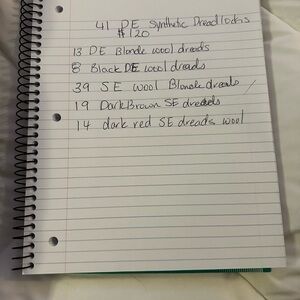 41 DE Synthetic Dreadlocks
$120
13 DE Blonde wool dreads
8 Black DE wool dreads
39 SE wool Blonde dreads /
19 Dark Brown SE dreads
14 dark red SE dreads wool